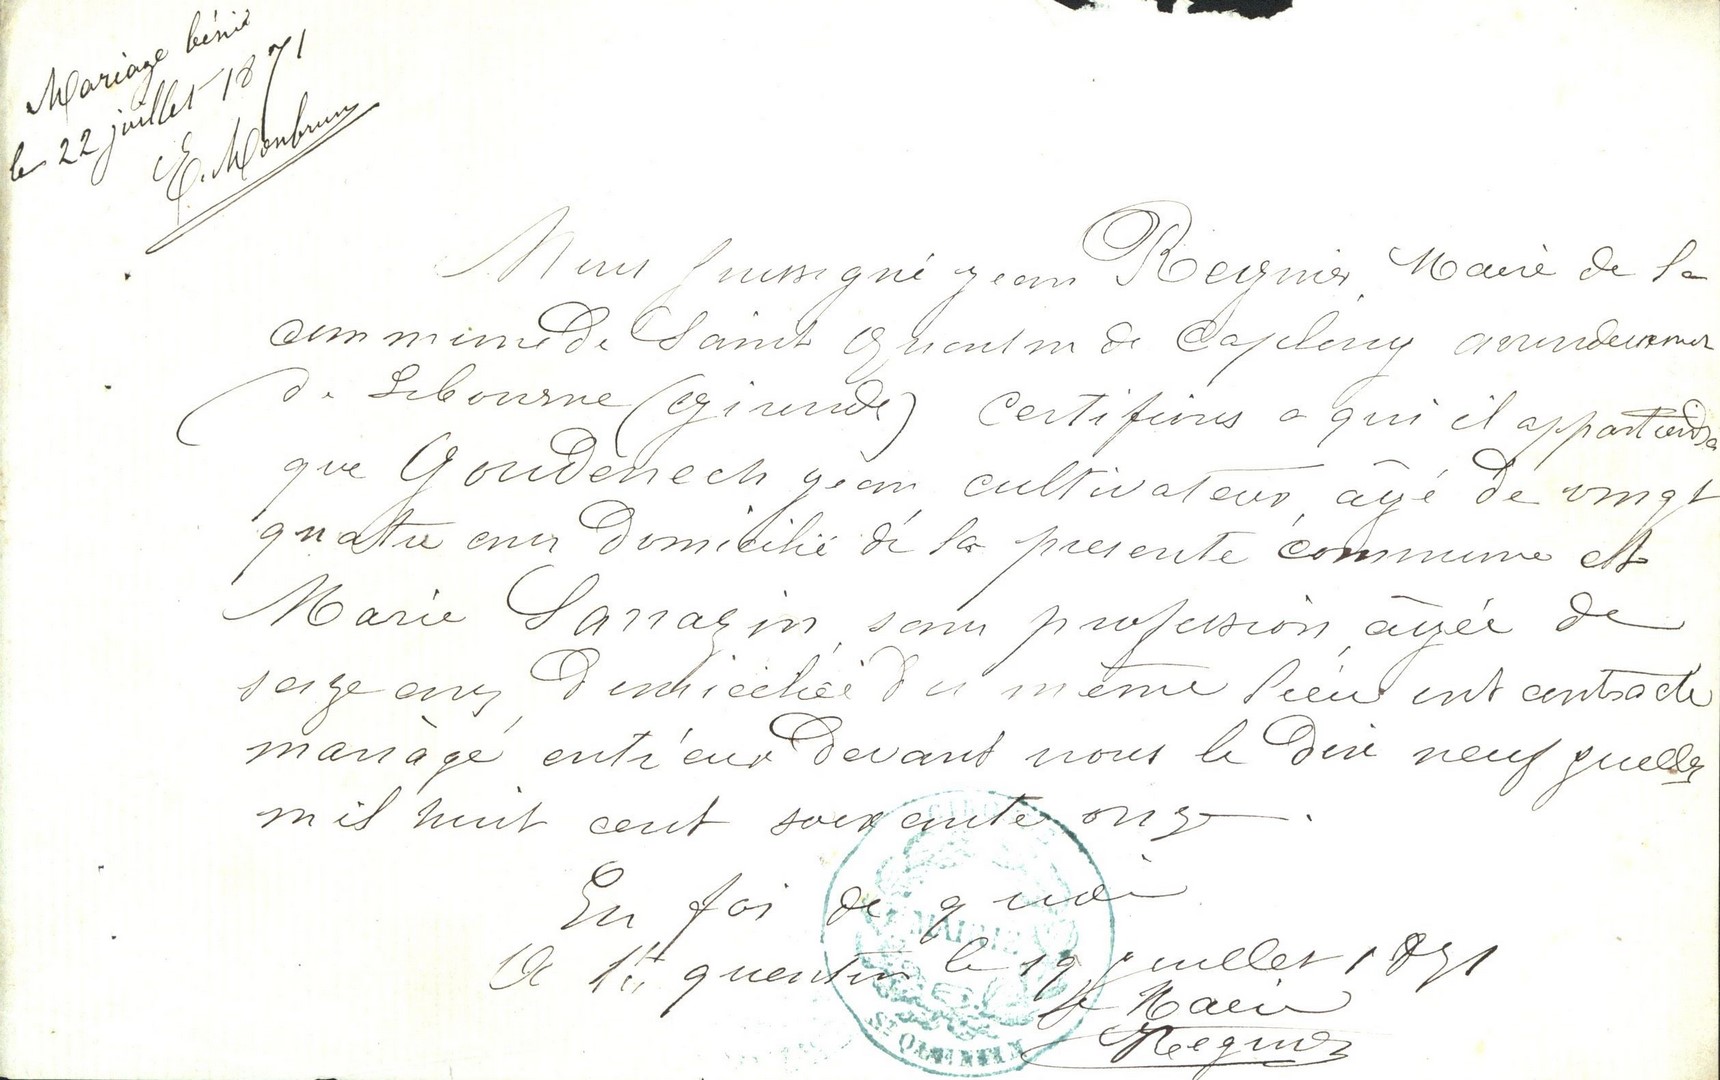 Mariage béni
le 22 juillet 1871
E. Monbrun
Nous soussigné jean Regnier, Maire de la
commune de Saint Quentin de Caplong arrondissement
de Libourne (Gironde) Certifions a qui il appartiendra
que Goudenech jean cultivateur, âgé de vingt
quatre ans domicilié dé la presente commune et
Marie Sarrazin, sans profession, âgée de
seize ans, domiciliée du même lieu ont contracté
mariage entieur devant nous le dix neuf juellet
mil huit cent soixante onze.
En foi de quoi
A St quentin le 19 juellet 1871
le Maire
Regnier
MAIRIE
ST QUENTIN